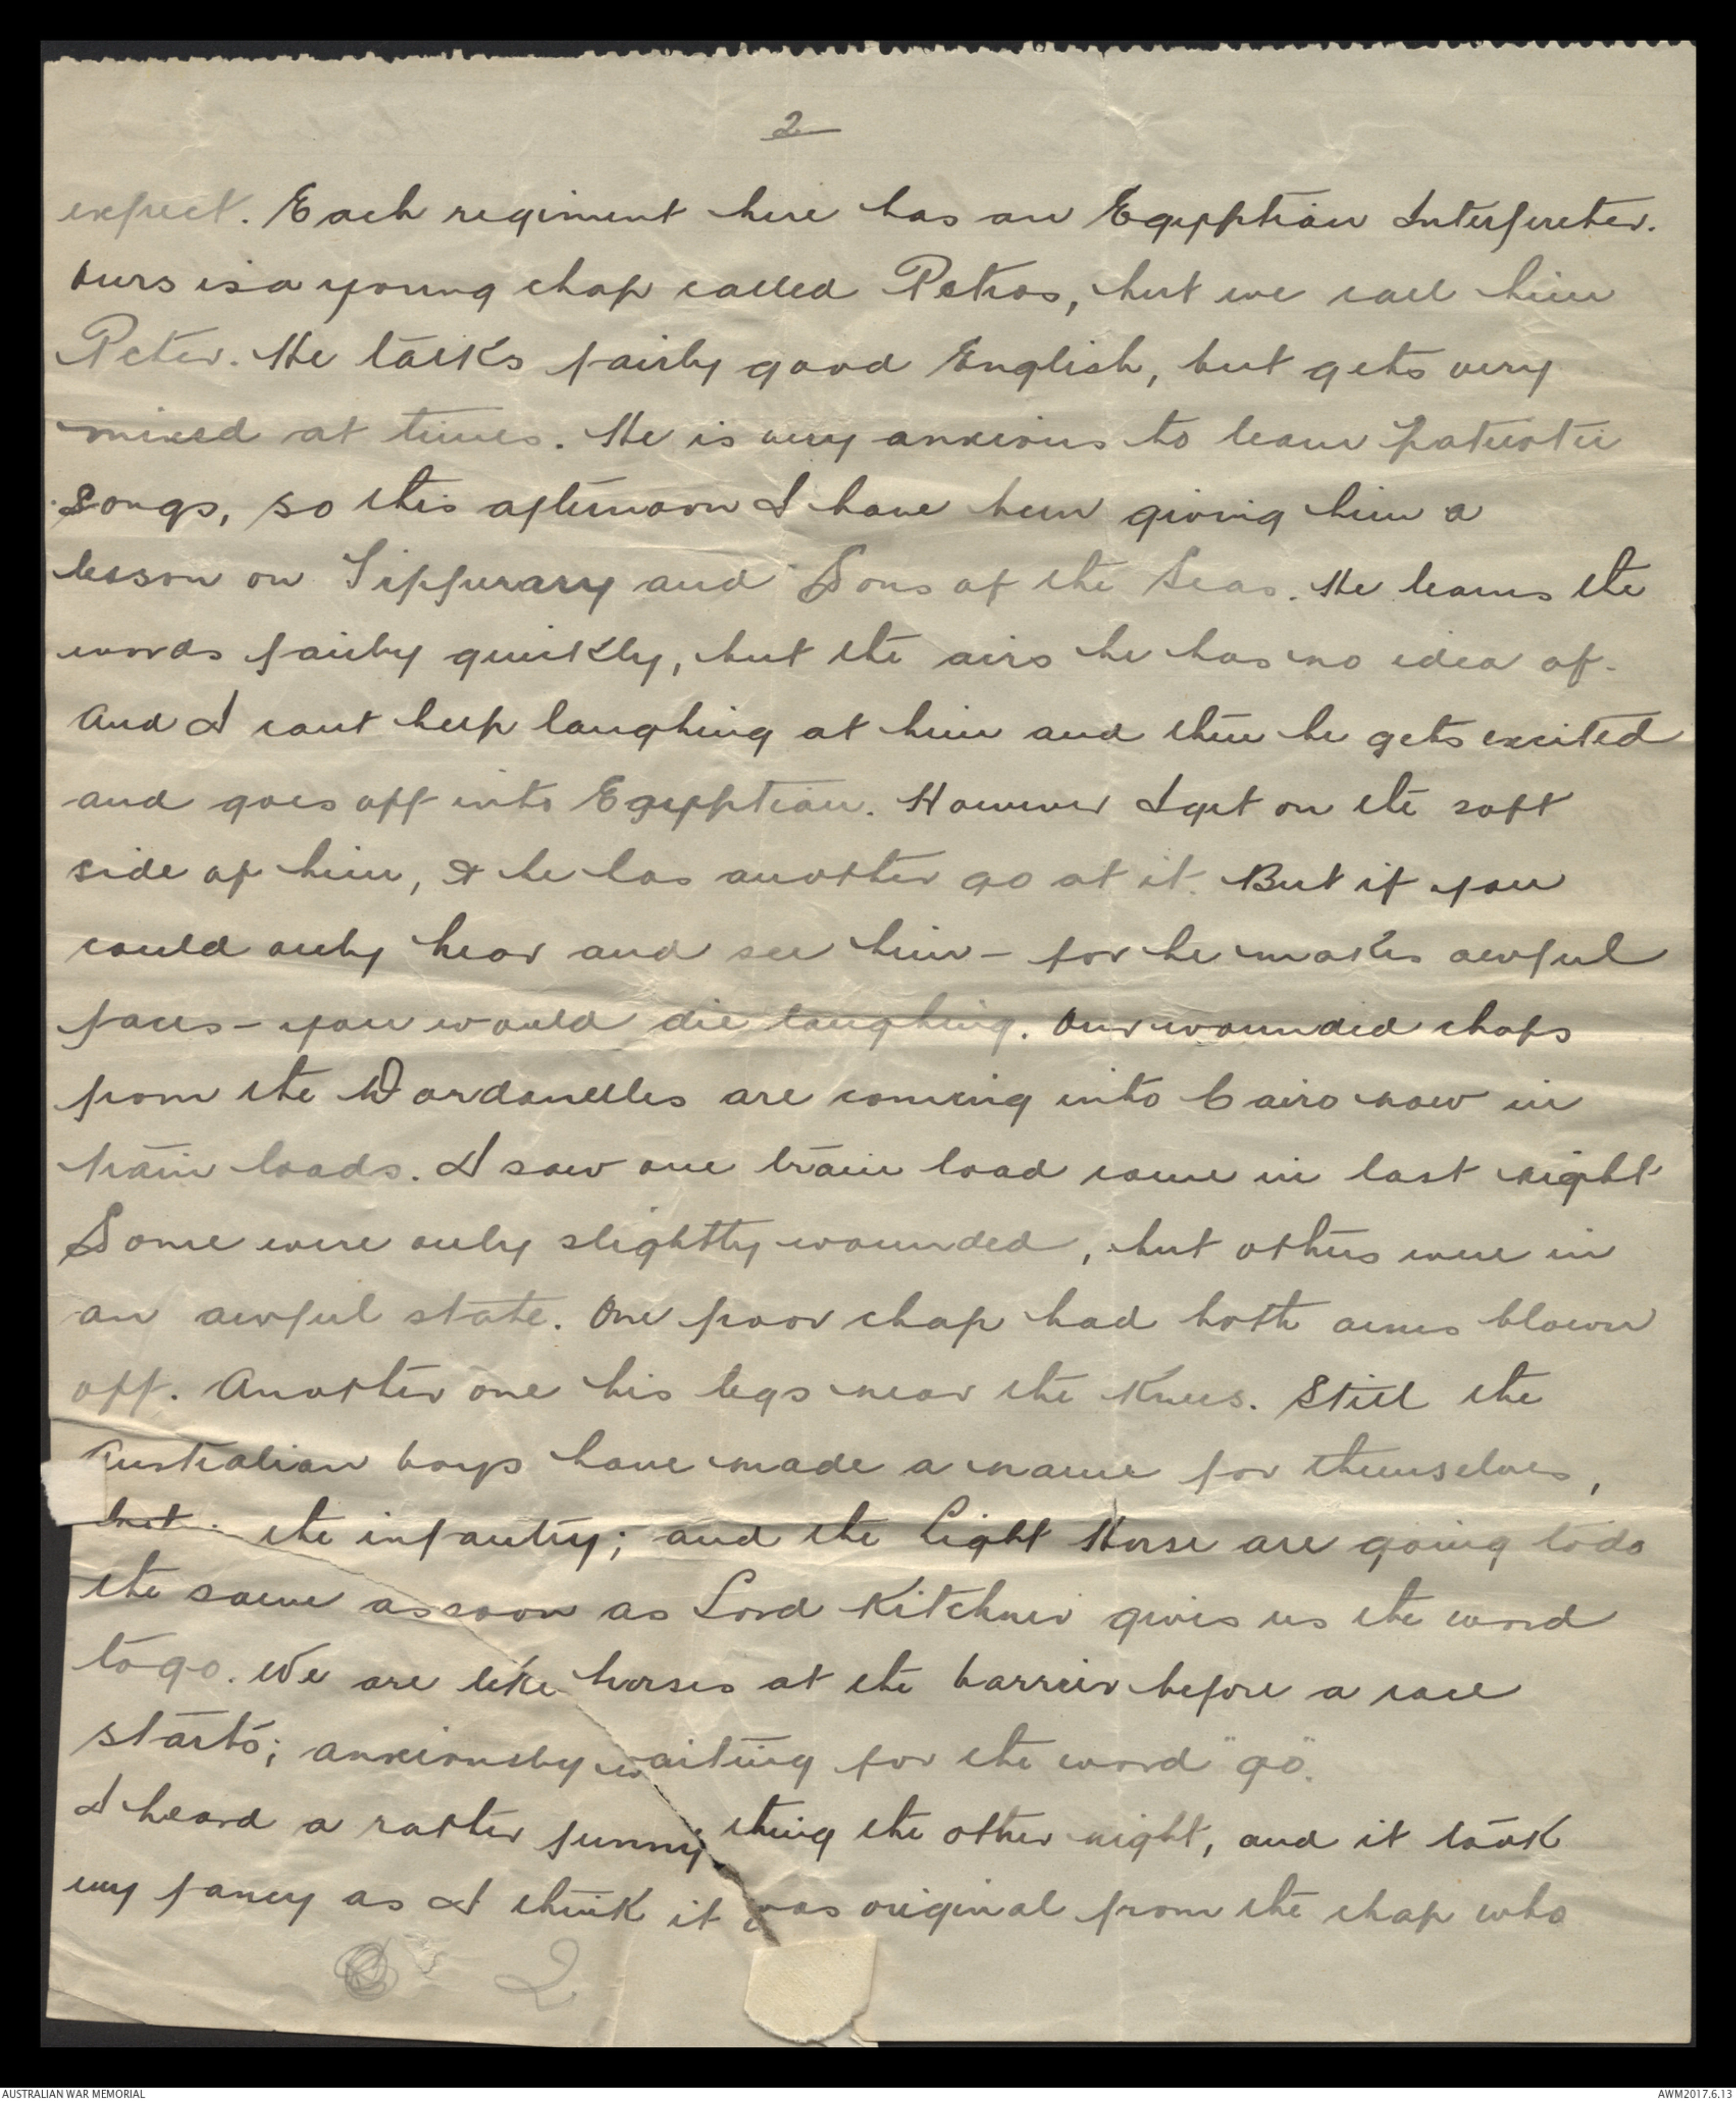 2
expect. Each regiment here has an Egypptian Interpreter.
Ours is a young chap called Petros, but we call him
Peter. He talks fairly good English, but gets very
mixed at times. He is very anxious to learn patriotic
songs, so this afternoon I have been giving him a
lesson on Tippurary and Sons of the Seas. He learns the
words fairly quickly, but the airs he has no idea of.
And I cant help laughing at him and then he gets excited
and goes off into Egypptian. However I get on the soft
side of him, & he has another go at it. But if you
could only hear and see him – for he makes awful
faces – you would die laughing. Our wounded chaps
from the Dardanelles are coming into Cairo now in
train loads. I saw one train load come in last night
Some were only slightly wounded, but others were in
an awful state. One poor chap had both arms blown
off. Another one his legs near the knees. Still the
Australian boys have made a name for themselves,
the infantry; and the Light Horse are going to do
the same as soon as Lord Kitchner gives us the word
to go. We are like horses at the barrier before a race
starts; anxiously waiting for the word "go".
I heard a rather funny thing the other night, and it took
my fancy as I think it was original from the chap who
2
AUSTRALIAN WAR MEMORIAL
AWM2017.6.13